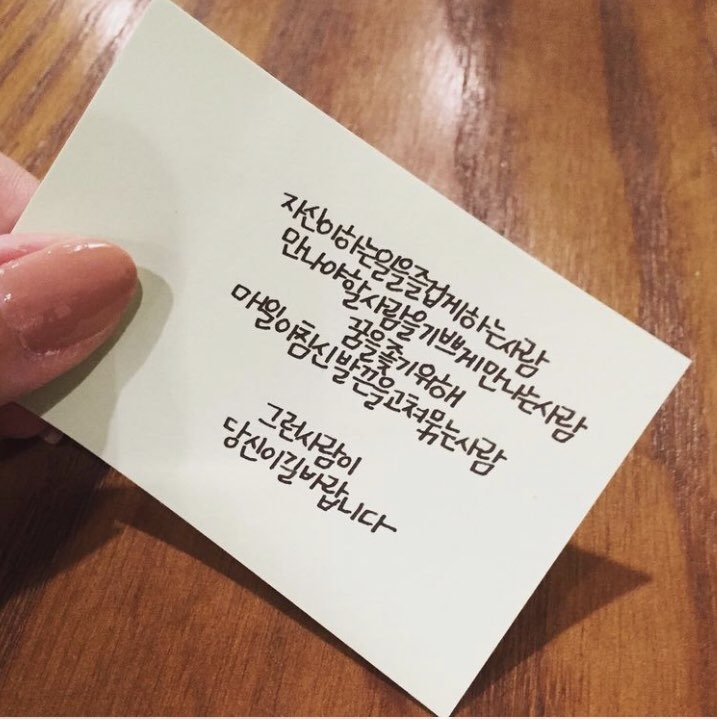 자신이하는일을즐겁게하는사람
만나야할사람을기쁘게만나는사람
꿈을좇기위해
매일아침신발끈을고쳐묶는사람
그런사람이
당신이길바랍니다